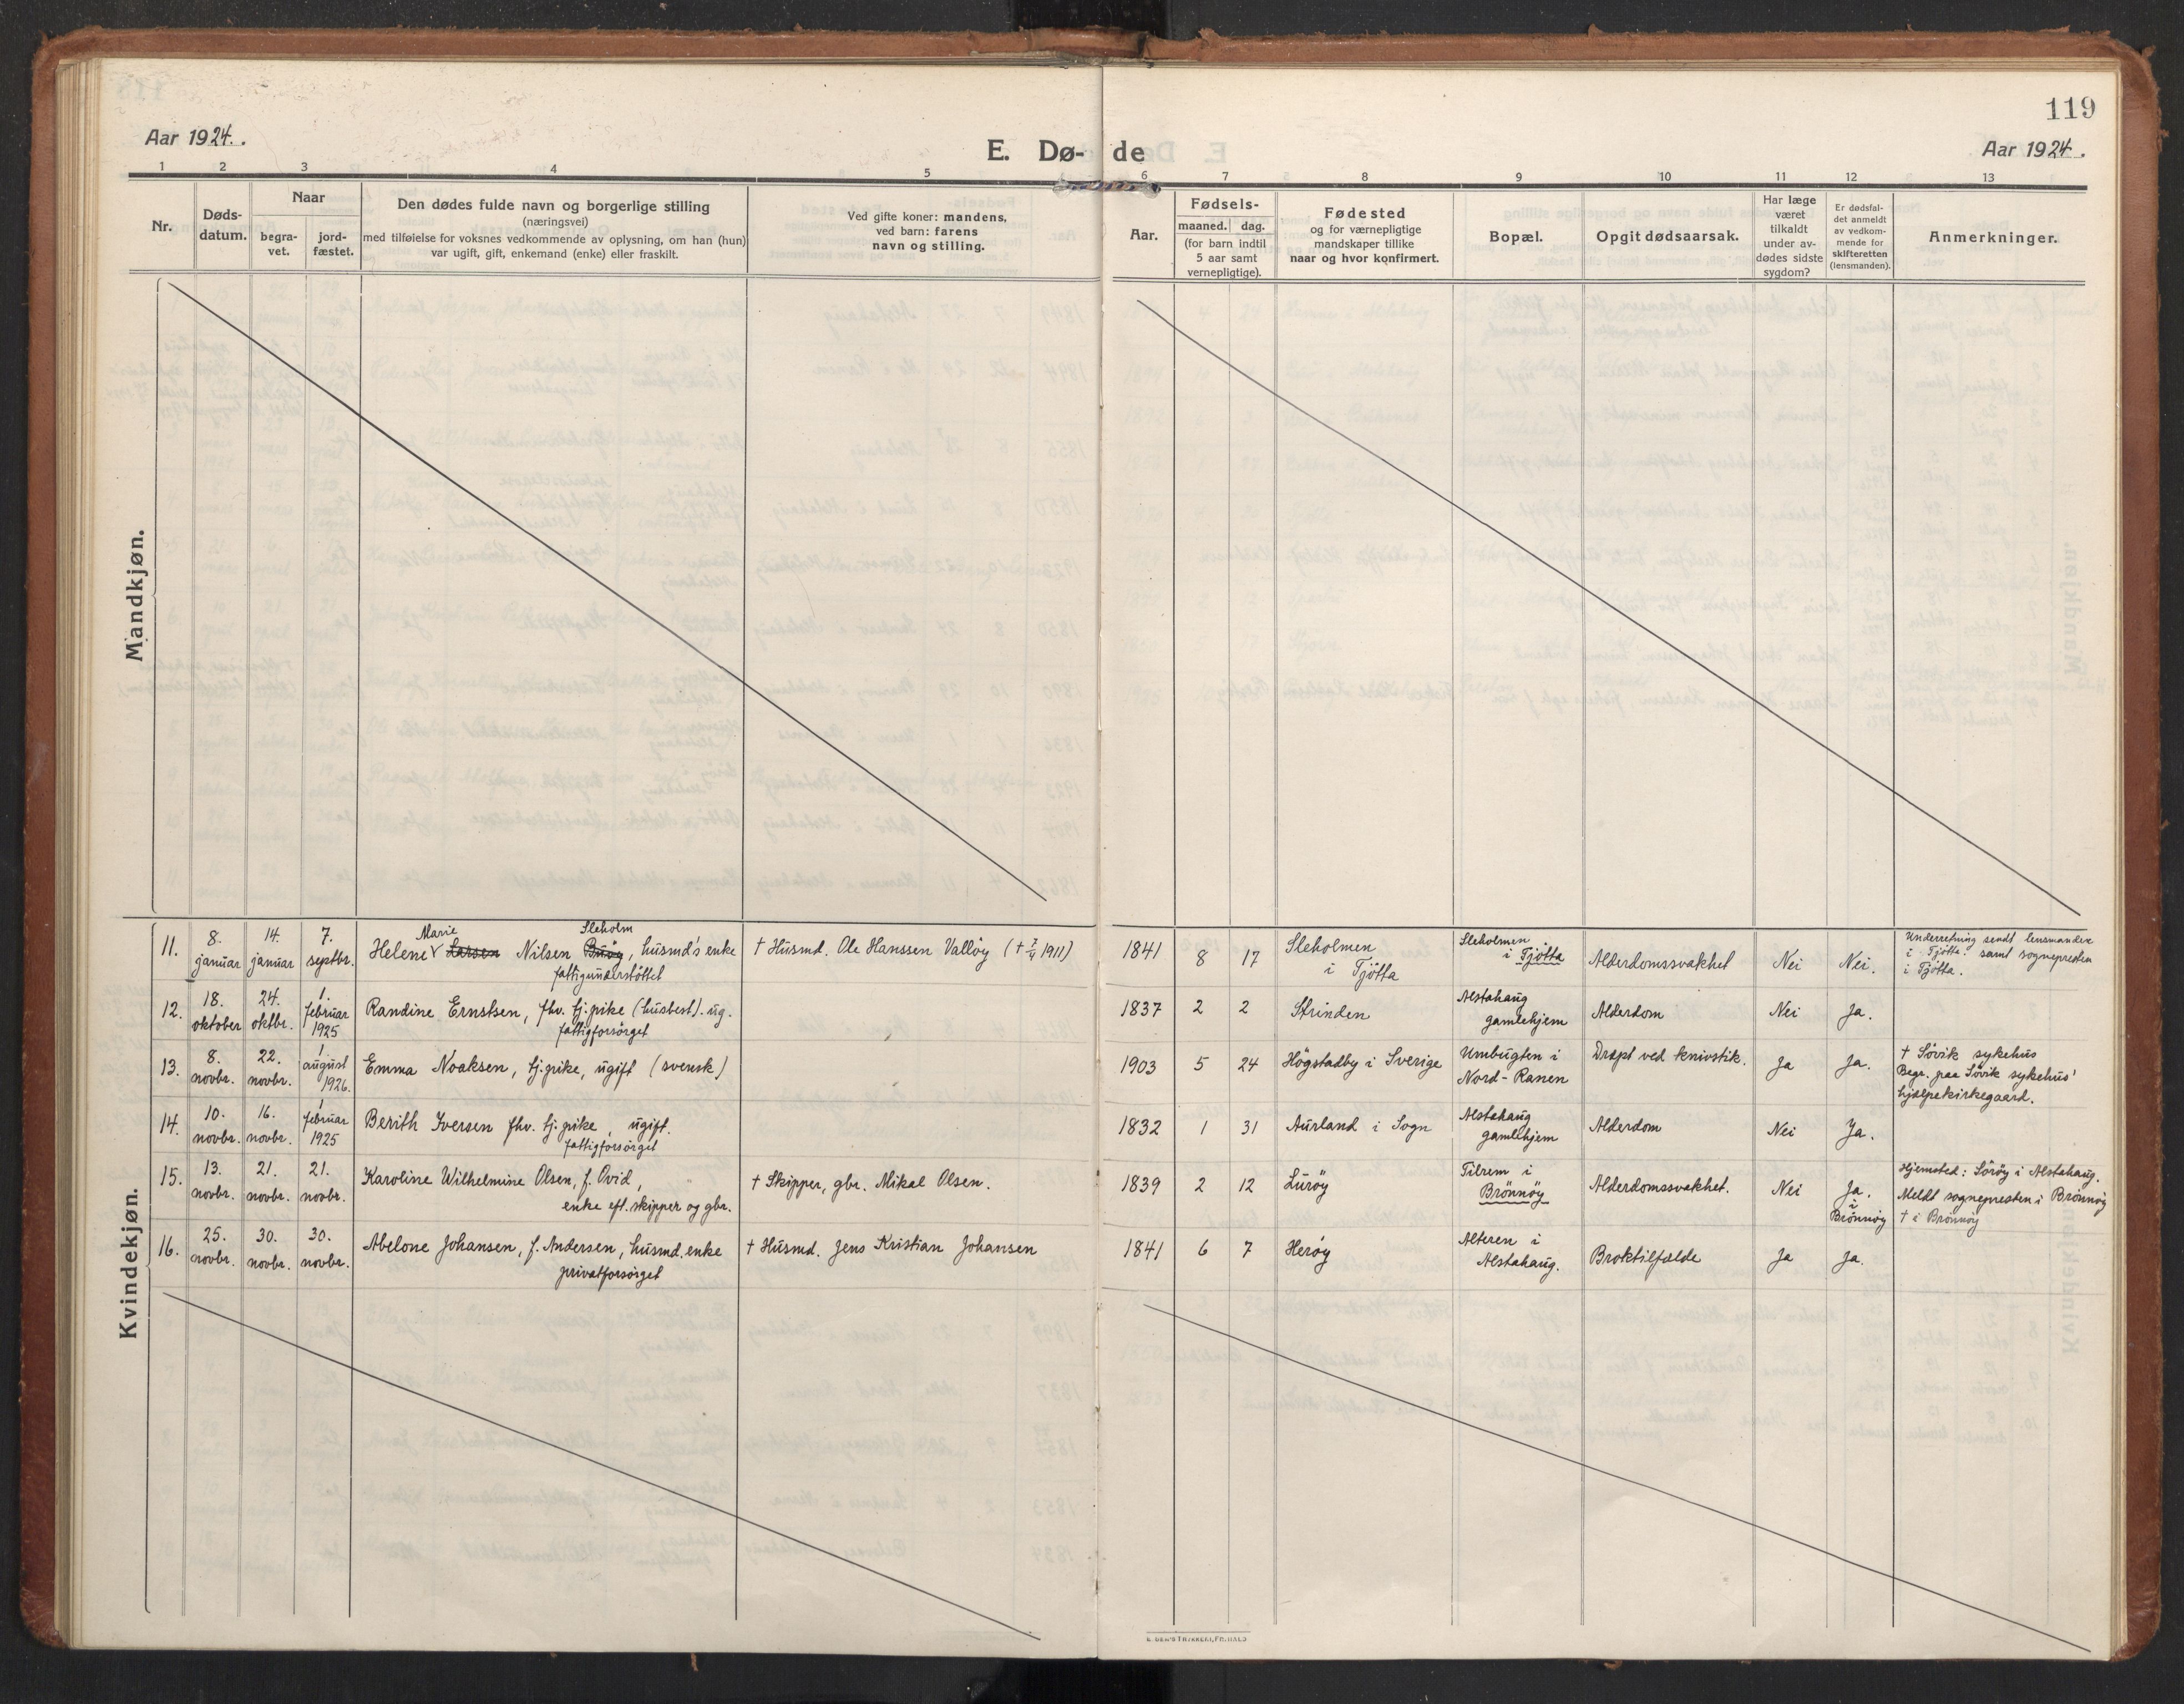 119
Aar 1924.
E. Dø-de
Aar 1924.
1 2 3 4 5 6 7 8 9 10 11 12 13
Nr.
Døds-
datum.
Naar
begra-
vet.
jord-
fæstet.
Den dødes fulde navn og borgerlige stilling
(næringsvei)
med tilføielse for voksnes vedkommende av oplysning, om han (hun)
var ugift, gift, enkemand (enke) eller fraskilt.
Ved gifte koner: mandens,
ved barn: farens
navn og stilling.
Aar.
Fødsels-
maaned. dag.
(for barn indtil
5 aar samt
vernepligtige).
Fødested
og for værnepligtige
mandskaper tillike
naar og hvor konfirmert.
Bopæl.
Opgit dødsaarsak.
Har læge
været
tilkaldt
under av-
dødes sidste
sygdom?
Er dødsfal-
det anmeldt
av vedkom-
mende for
skifteretten
(lensmanden).
Anmerkninger.
Mandkjøn.
Kvindekjøn.
11.
8.
januar
14.
januar
7.
septbr.
Marie Sleholm
Helene Larsen Nilsen Buøy, husmd's enke
fattigunderstöttet
† Husmd. Ole Hanssen Vallöy († 7/4 1911)
1841 8 17
Sleholmen
i Tjötta
Sleholmen
i Tjötta
Alderdomssvakhet
Nei Nei.
Underretning sendt lensmanden
i Tjötta samt sognepresten
i Tjötta.
12.
18.
oktober
24.
oktbr.
1.
februar
1925
Randine Ernstsen, fhv. tj.pike (husbest). ug.
fattigforsörget
1837 2 2
Strinden
Alstahaug
gamlehjem
Alderdom
Nei Ja.
13.
8.
novbr.
22.
novbr.
1
august
1926.
Emma Noaksen, tj.pike, ugift (svensk)
1903 5 24
Högstadby i Sverige
Umbugten i
Nord-Ranen
Dræpt ved knivstik.
Ja Ja.
† Sövik sykehus
Begr. paa Sövik sykehus'
hjælpekirkegaard.
14.
10.
novbr.
16.
novbr.
1
februar
1925
Berith Iversen fhv. tj.pike, ugift.
fattigforsörget
1832 1 31
Aurland i Sogn
Alstahaug
gamlehjem
Alderdom
Nei Ja.
15.
13.
novbr.
21.
novbr.
21.
novbr.
Karoline Wilhelmine Olsen, f. Ovid,
enke eft. skipper og gbr.
† Skipper, gbr. Mikal Olsen.
1839 2 12
Luröy
Tilrem i
Brönnöy
Alderdomssvakhet.
Nei
Ja.
i
Brönnöy
Hjemsted: Söröy i Alstahaug.
Meldt sognepresten i Brönnöy
† i Brönnöy
16.
25.
novbr.
30.
novbr.
30.
novbr.
Abelone Johansen, f. Andersen, husmd. enke
privatforsörget
† Husmd. Jens Kristian Johansen
1841 6 7
Heröy
Alteren i
Alstahaug.
Broktilfælde
Ja Ja.